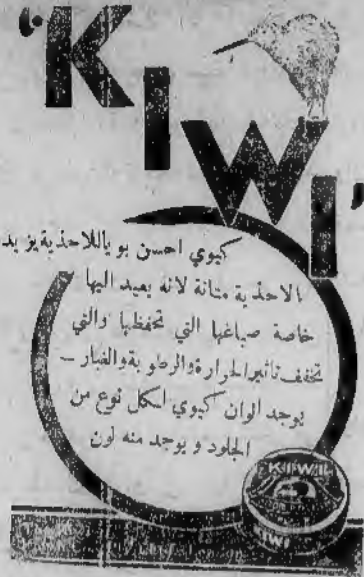 'KIWI'
كيوي احسن بويا للاحذية يزيد
الاحذية متانة لانه يعيد اليها
خاصة صباغها التي تحفظها والتي
تخفف تاثير الحرارة والرطوبة والغبار —
يوجد الوان كيوي لكل نوع من
الجلود ويوجد منه لون
KIWI
KIWI